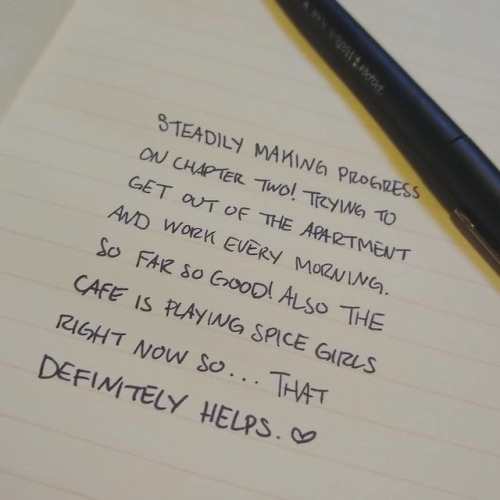 STEADILY MAKING PROGRESS
ON CHAPTER TWO! TRYING TO
GET OUT OF THE APARTMENT
AND WORK EVERY MORNING.
SO FAR SO GOOD! ALSO THE
CAFE IS PLAYING SPICE GIRLS
RIGHT NOW SO... THAT
DEFINITELY HELPS. ♡